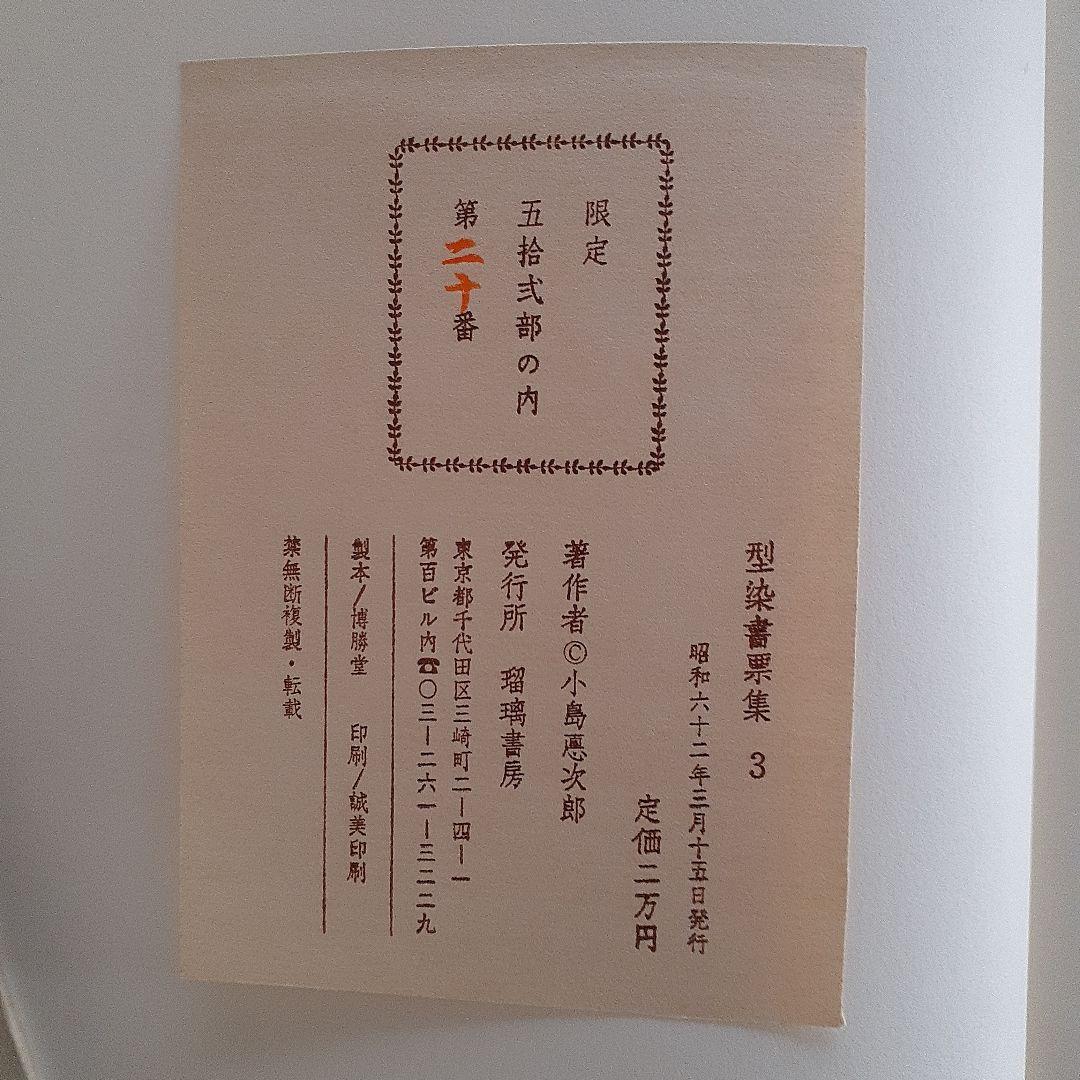 限定
五拾弐部の内
第二十番
型染書票集 3
昭和六十二年三月十五日発行
定価二万円
著作者©小島悳次郎
発行所 瑠璃書房
東京都千代田区三崎町二ー四ー一
第百ビル内☎〇三ー二六一ー三二二九
製本/博勝堂 印刷/誠美印刷
禁無断複製・転載